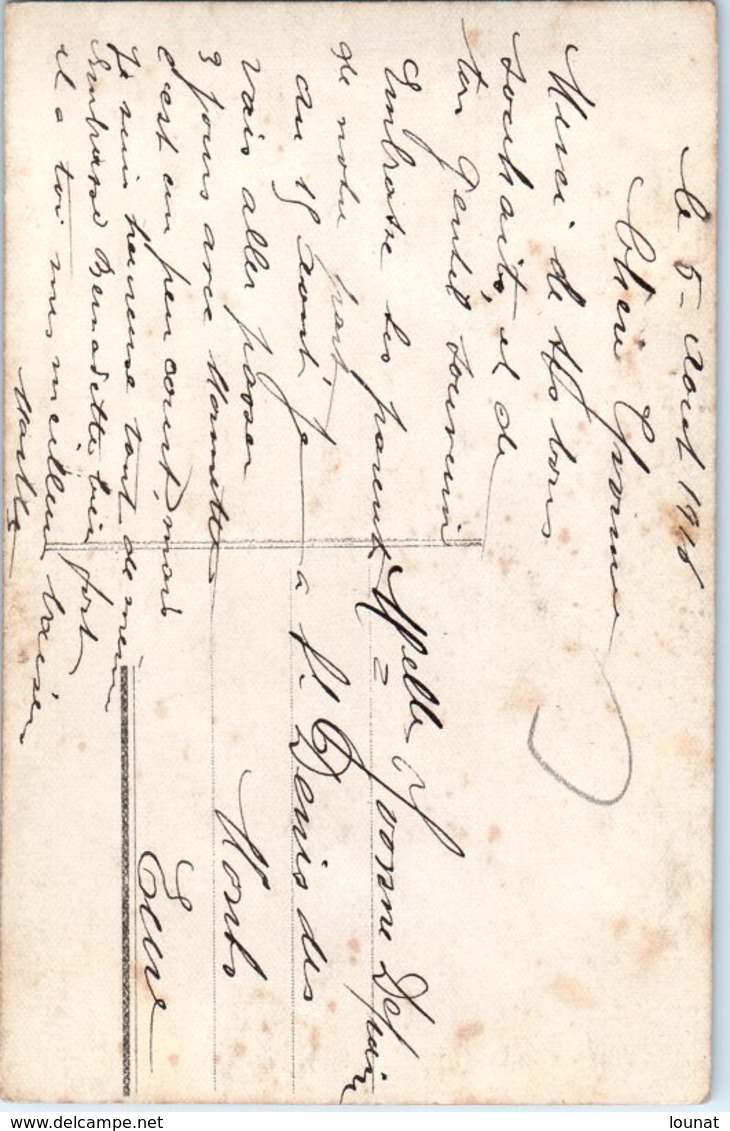 le 5 - aout 1918
Chère Yvonne
Merci de tes bons
souhaits, et de
ton gentil souvenir
Embrasse tes parents
de notre part
au 15 aout je
vais aller passer
3 jours avec Mamette
c'est un peu court, mais
Je suis heureuse tout de même
Embrasse Bernadette bien fort
et a toi mes meilleurs baisers
Marthe
Melle Yvonne Delpuin
a St Denis des
Monts
Eure
lounat